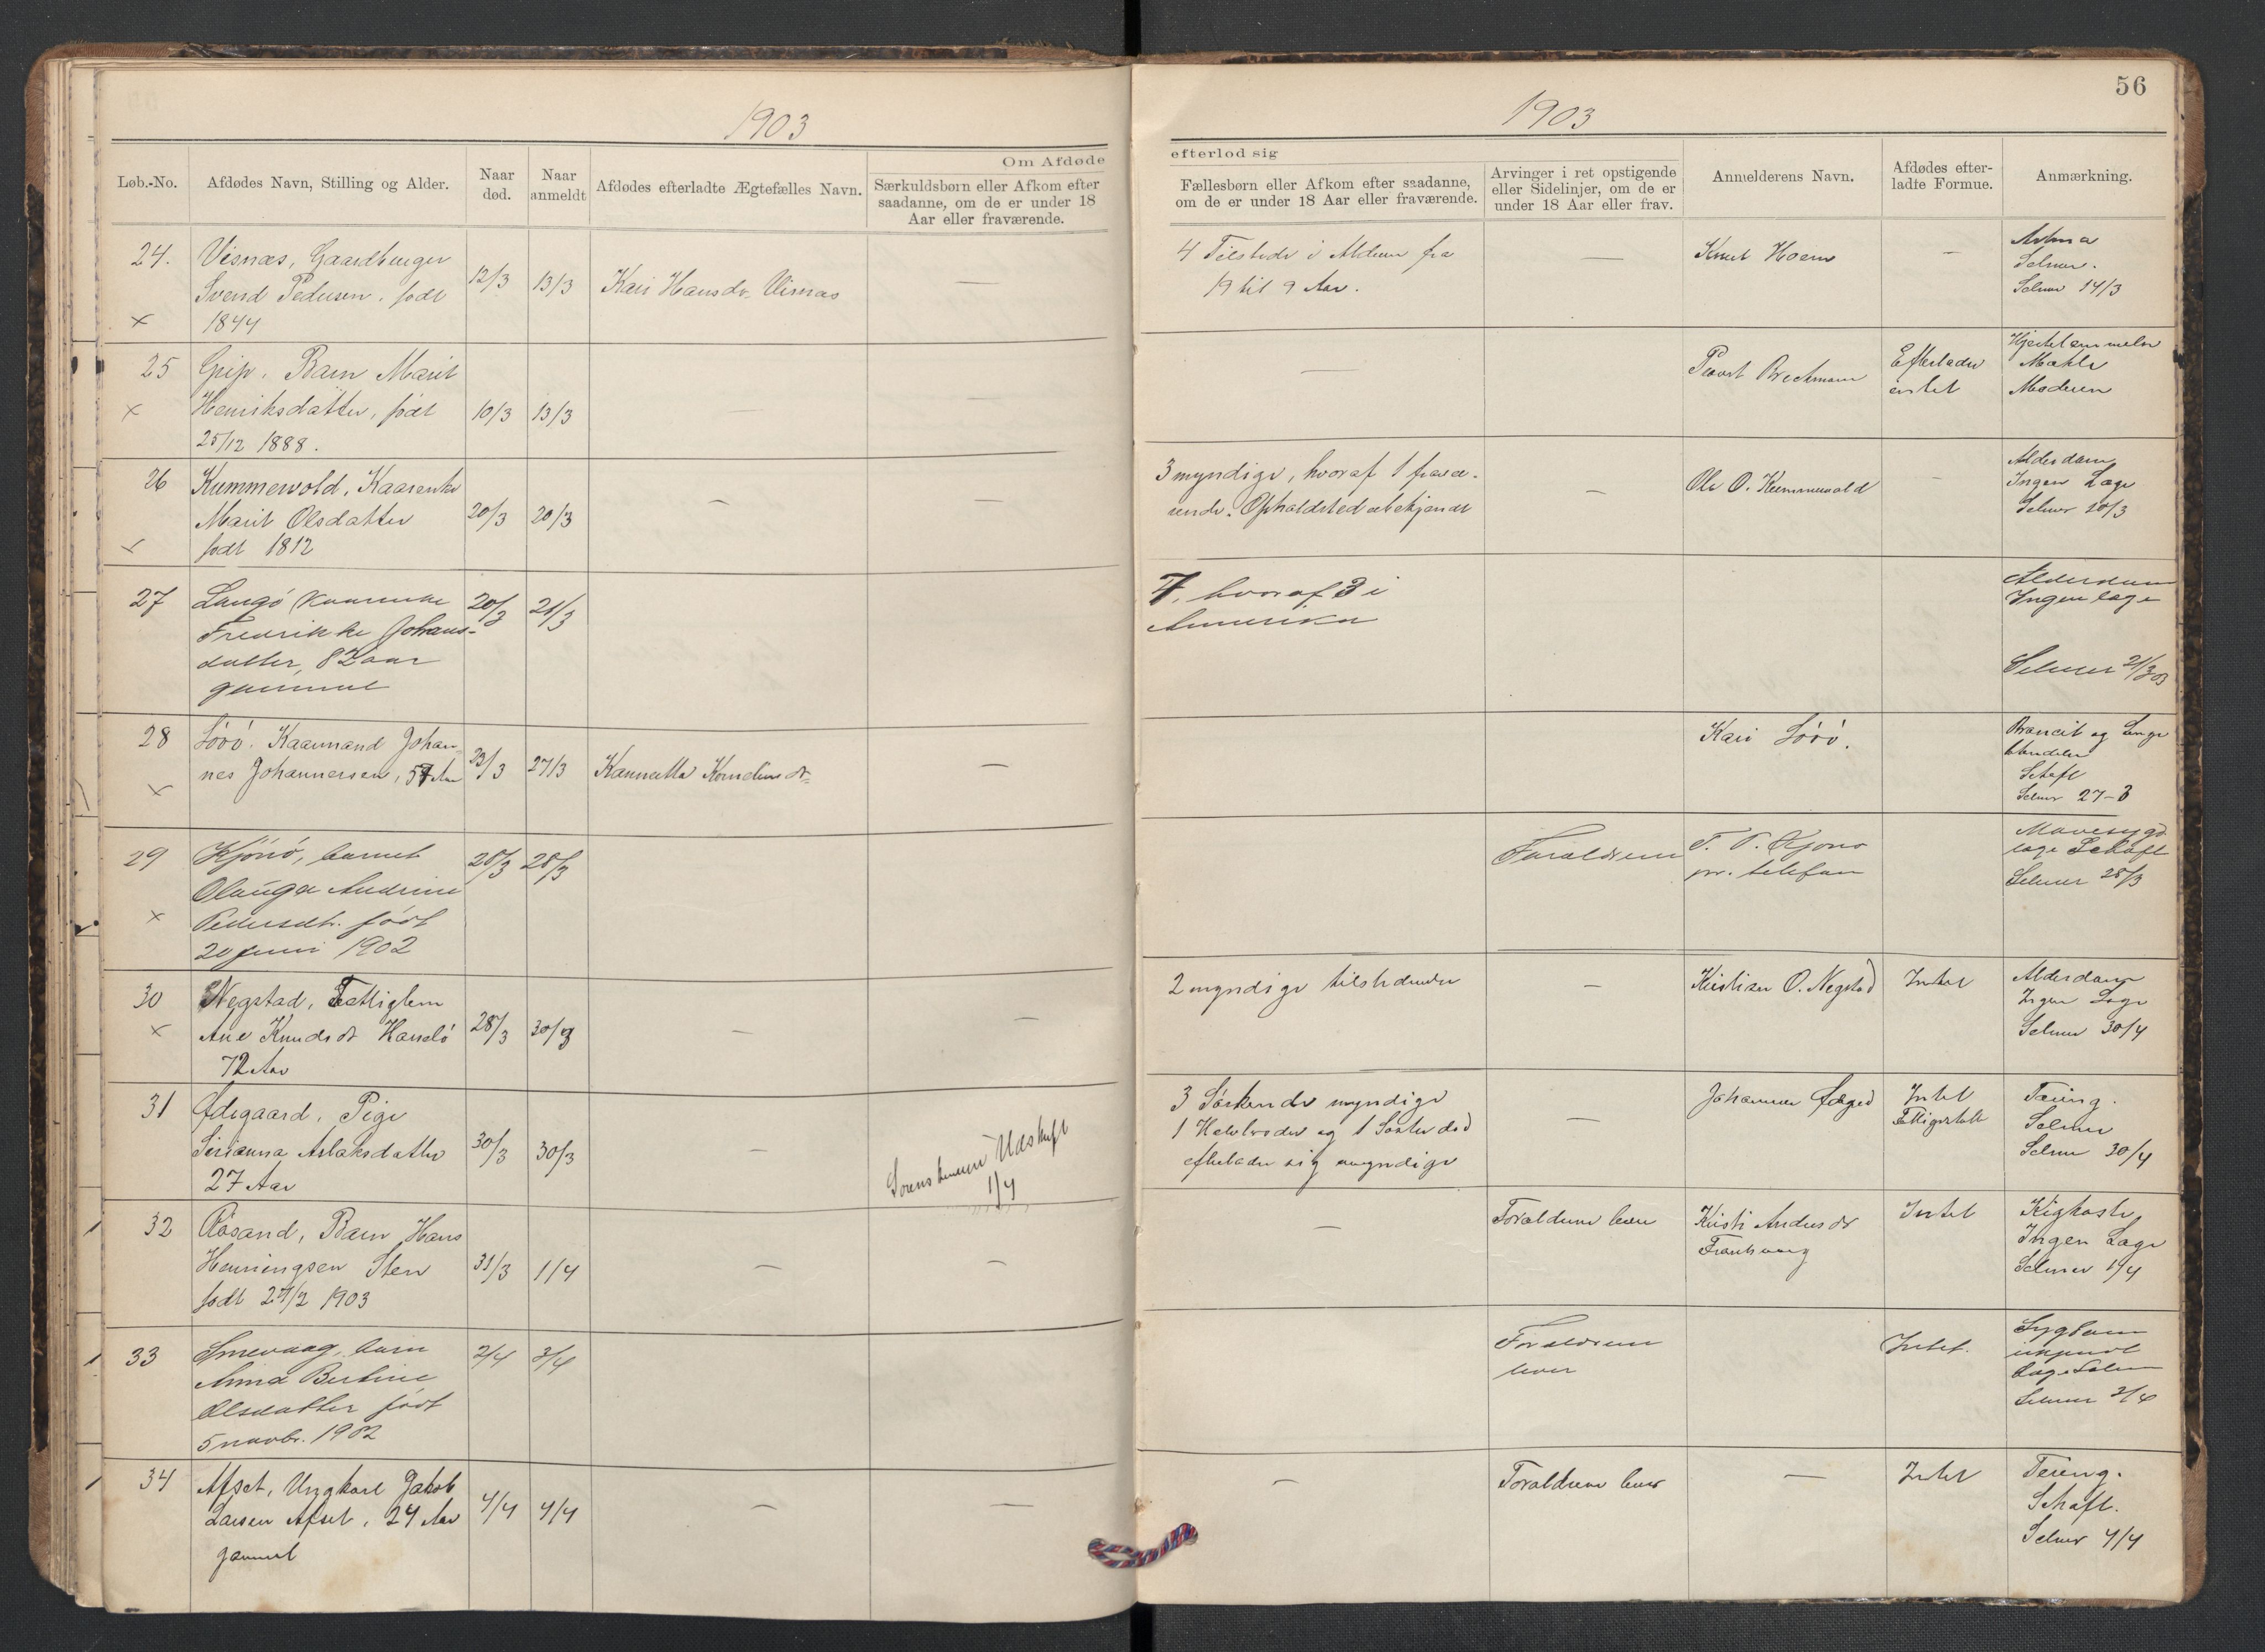 56
1903
1903
Om Afdøde
efterlod sig
Løb.-No.
Afdødes Navn, Stilling og Alder.
Naar død.
Naar anmeldt
Afdødes efterladte Ægtefælles Navn.
Særkuldsbørn eller Afkom efter
saadanne, om de er under 18
Aar eller fraværende.
Fællesbørn eller Afkom efter saadanne,
om de er under 18 Aar eller fraværende.
Arvinger i ret opstigende
eller Sidelinjer, om de er
under 18 Aar eller frav.
Anmelderens Navn.
Afdødes efter-
ladte Formue.
Anmærkning.
24.
Visnæs, Gaardbruger
Svend Pedersen, født
1844
12/3
13/3
Kari Hansdr. Visnæs
—
4 Tilstede i Alderen fra
19 til 9 Aar.
—
Knut Hoem
—
Astma
Selmer.
Selmer 14/3
25
Grip. Barn Marit
Henriksdatter, født
25/12 1888.
10/3
13/3
—
—
—
Provst Brechmann
Efterlader
intet
Mælk
Moderen
26
Kummervold, Kaarenke
Marit Olsdatter
født 1812
20/3
20/3
—
—
3 myndige, hvoraf 1 fravæ-
rende. Opholdsted ubekjendt
—
Ole O. Kummervold
—
Alderdom
Ingen Læge
Selmer 20/3
27
Langö Kaarenke
Fredrikke Johans-
datter, 82 aar
gammel
20/3
21/3
7, hvoraf 3 i
Amerika
Alderdom
Ingen læge
Selmer 21/3 03
28
Sörö. Kaarmand Johan-
nes Johannesen, 57 Aar
23/3
27/3
Kornelius dr
—
Kari Sörö.
Broncit og Lunge
Schaft
Selmer 27-3
29
Kjönö, barnet
Olauga Andrine
Pedersdtr. født
20 juni 1902
28/3
28/3
Foraldrene
T. P. Kjönö
pr. telefon
Mavesygd.
læge Schaft
Selmer 28/3
30
Negstad, Fattiglem
Ane Knudsdr Hanslö
72 Aar
28/3
30/3
—
—
2 myndige tilstedeværer
—
Kristian O. Negstad
Intet
Alderdom
Ingen Læge
Selmer 30/4
31
Ødegaard, Pige
Serianna Aslaksdatter
27 Aar
30/3
30/3
—
Sorenskriveren Udskrift
1/4
3 Söskende myndige
1 Halvbroder og 1 Söster död
efterlader sig umyndige
—
Johannes Ødegd
Intet
Fattigstötte
Tæring.
Selmer
Selmer 30/4
32
Røsand, Barn Hans
Henningsen Sten
født 27/2 1903
31/3
1/4
—
—
—
Foraldrene lever
Kirsti Anders dr
Intet
Kighoste
Ingen Læge
Selmer 1/4
33
Smevaag, barn
Anna Bertine
Olsdatter født
5 novbr. 1902
2/4
3/4
Foraldrene
lever
Intet.
Sygdom
ukjendt
læge Selmer
Selmer 3/4
34
Afset, Ungkarl Jakob
Larsen Afset, 24 Aar
gammel
4/4
4/4
—
—
—
Foraldrene lever
—
Intet
Tæring.
Schaft.
Selmer 4/4